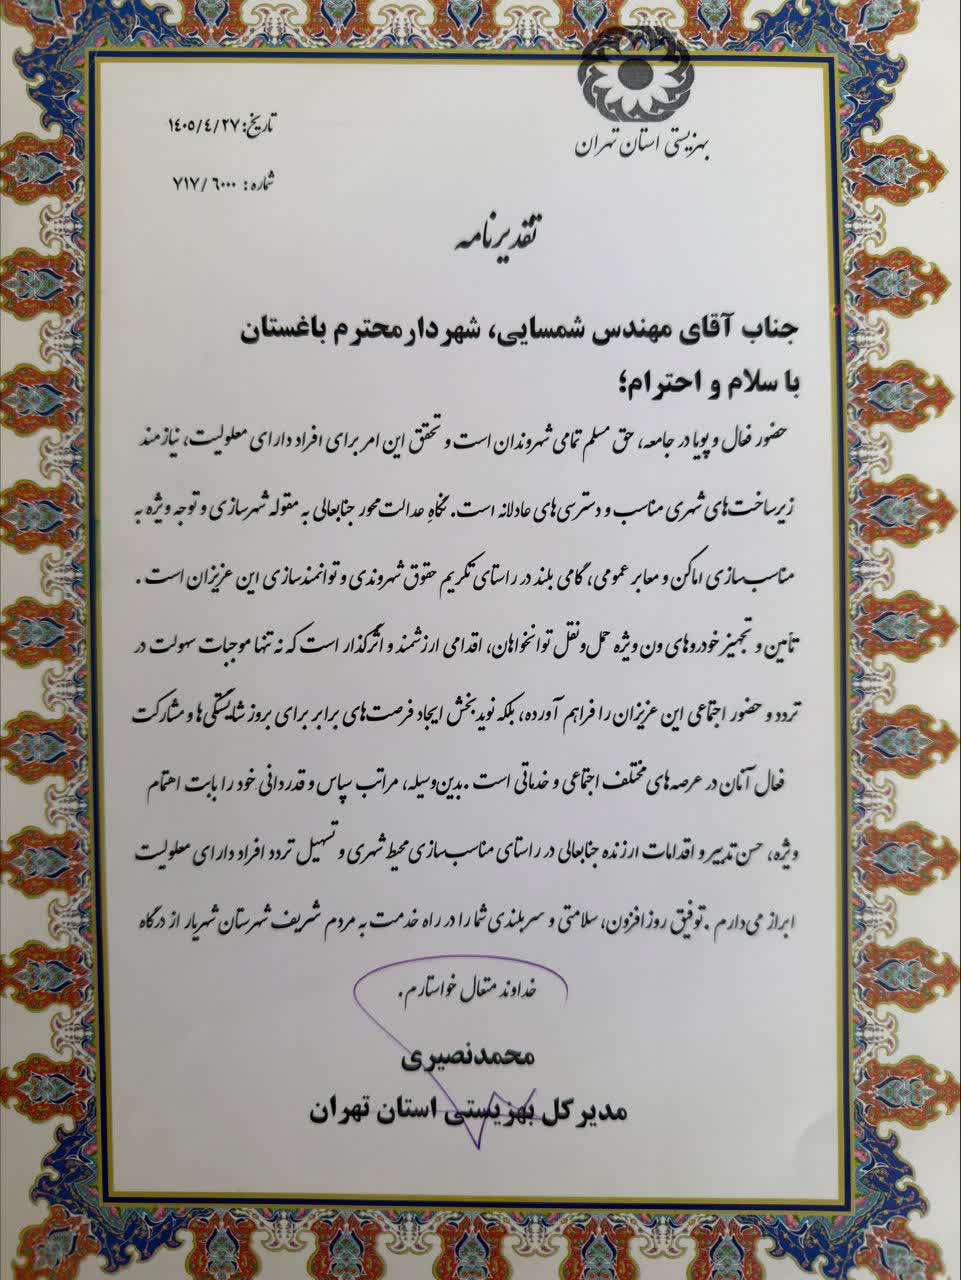 بهزیستی استان تهران
تاریخ: ۱۴۰۵/۴/۲۷
شماره: ۷۱۷/۶۰۰۰
تقدیرنامه
جناب آقای مهندس شمسایی، شهردار محترم باغستان
با سلام و احترام؛
حضور فعال و پویا در جامعه، حق مسلم تمامی شهروندان است و تحقق این امر برای افراد دارای معلولیت، نیازمند
زیرساخت‌های شهری مناسب و دسترسی‌های عادلانه است. نگاهِ عدالت‌محور جنابعالی به مقوله شهرسازی و توجه ویژه به
مناسب‌سازی اماکن و معابر عمومی، گامی بلند در راستای تکریم حقوق شهروندی و توانمندسازی این عزیزان است.
تأمین و تجهیز خودروهای ون ویژه حمل‌ونقل توانخواهان، اقدامی ارزشمند و اثرگذار است که نه تنها موجبات سهولت در
تردد و حضور اجتماعی این عزیزان را فراهم آورده، بلکه نویدبخش ایجاد فرصت‌های برابر برای بروز شایستگی‌ها و مشارکت
فعال آنان در عرصه‌های مختلف اجتماعی و خدماتی است. بدین‌وسیله، مراتب سپاس و قدردانی خود را بابت اهتمام
ویژه، حسن تدبیر و اقدامات ارزنده جنابعالی در راستای مناسب‌سازی محیط شهری و تسهیل تردد افراد دارای معلولیت
ابراز می‌دارم. توفیق روزافزون، سلامتی و سربلندی شما را در راه خدمت به مردم شریف شهرستان شهریار از درگاه
خداوند متعال خواستارم.
محمدنصیری
مدیرکل بهزیستی استان تهران